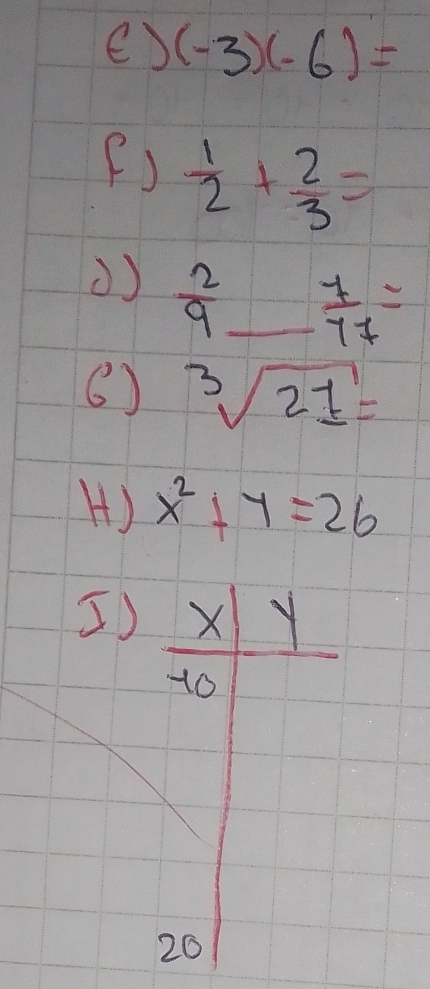 E) (-3)(-6) =
F) 1/2 + 2/3 =
J) 2/9 __ 7/17 =
G) ³√27 =
H) x² + y = 26
I) x | y
-10
20